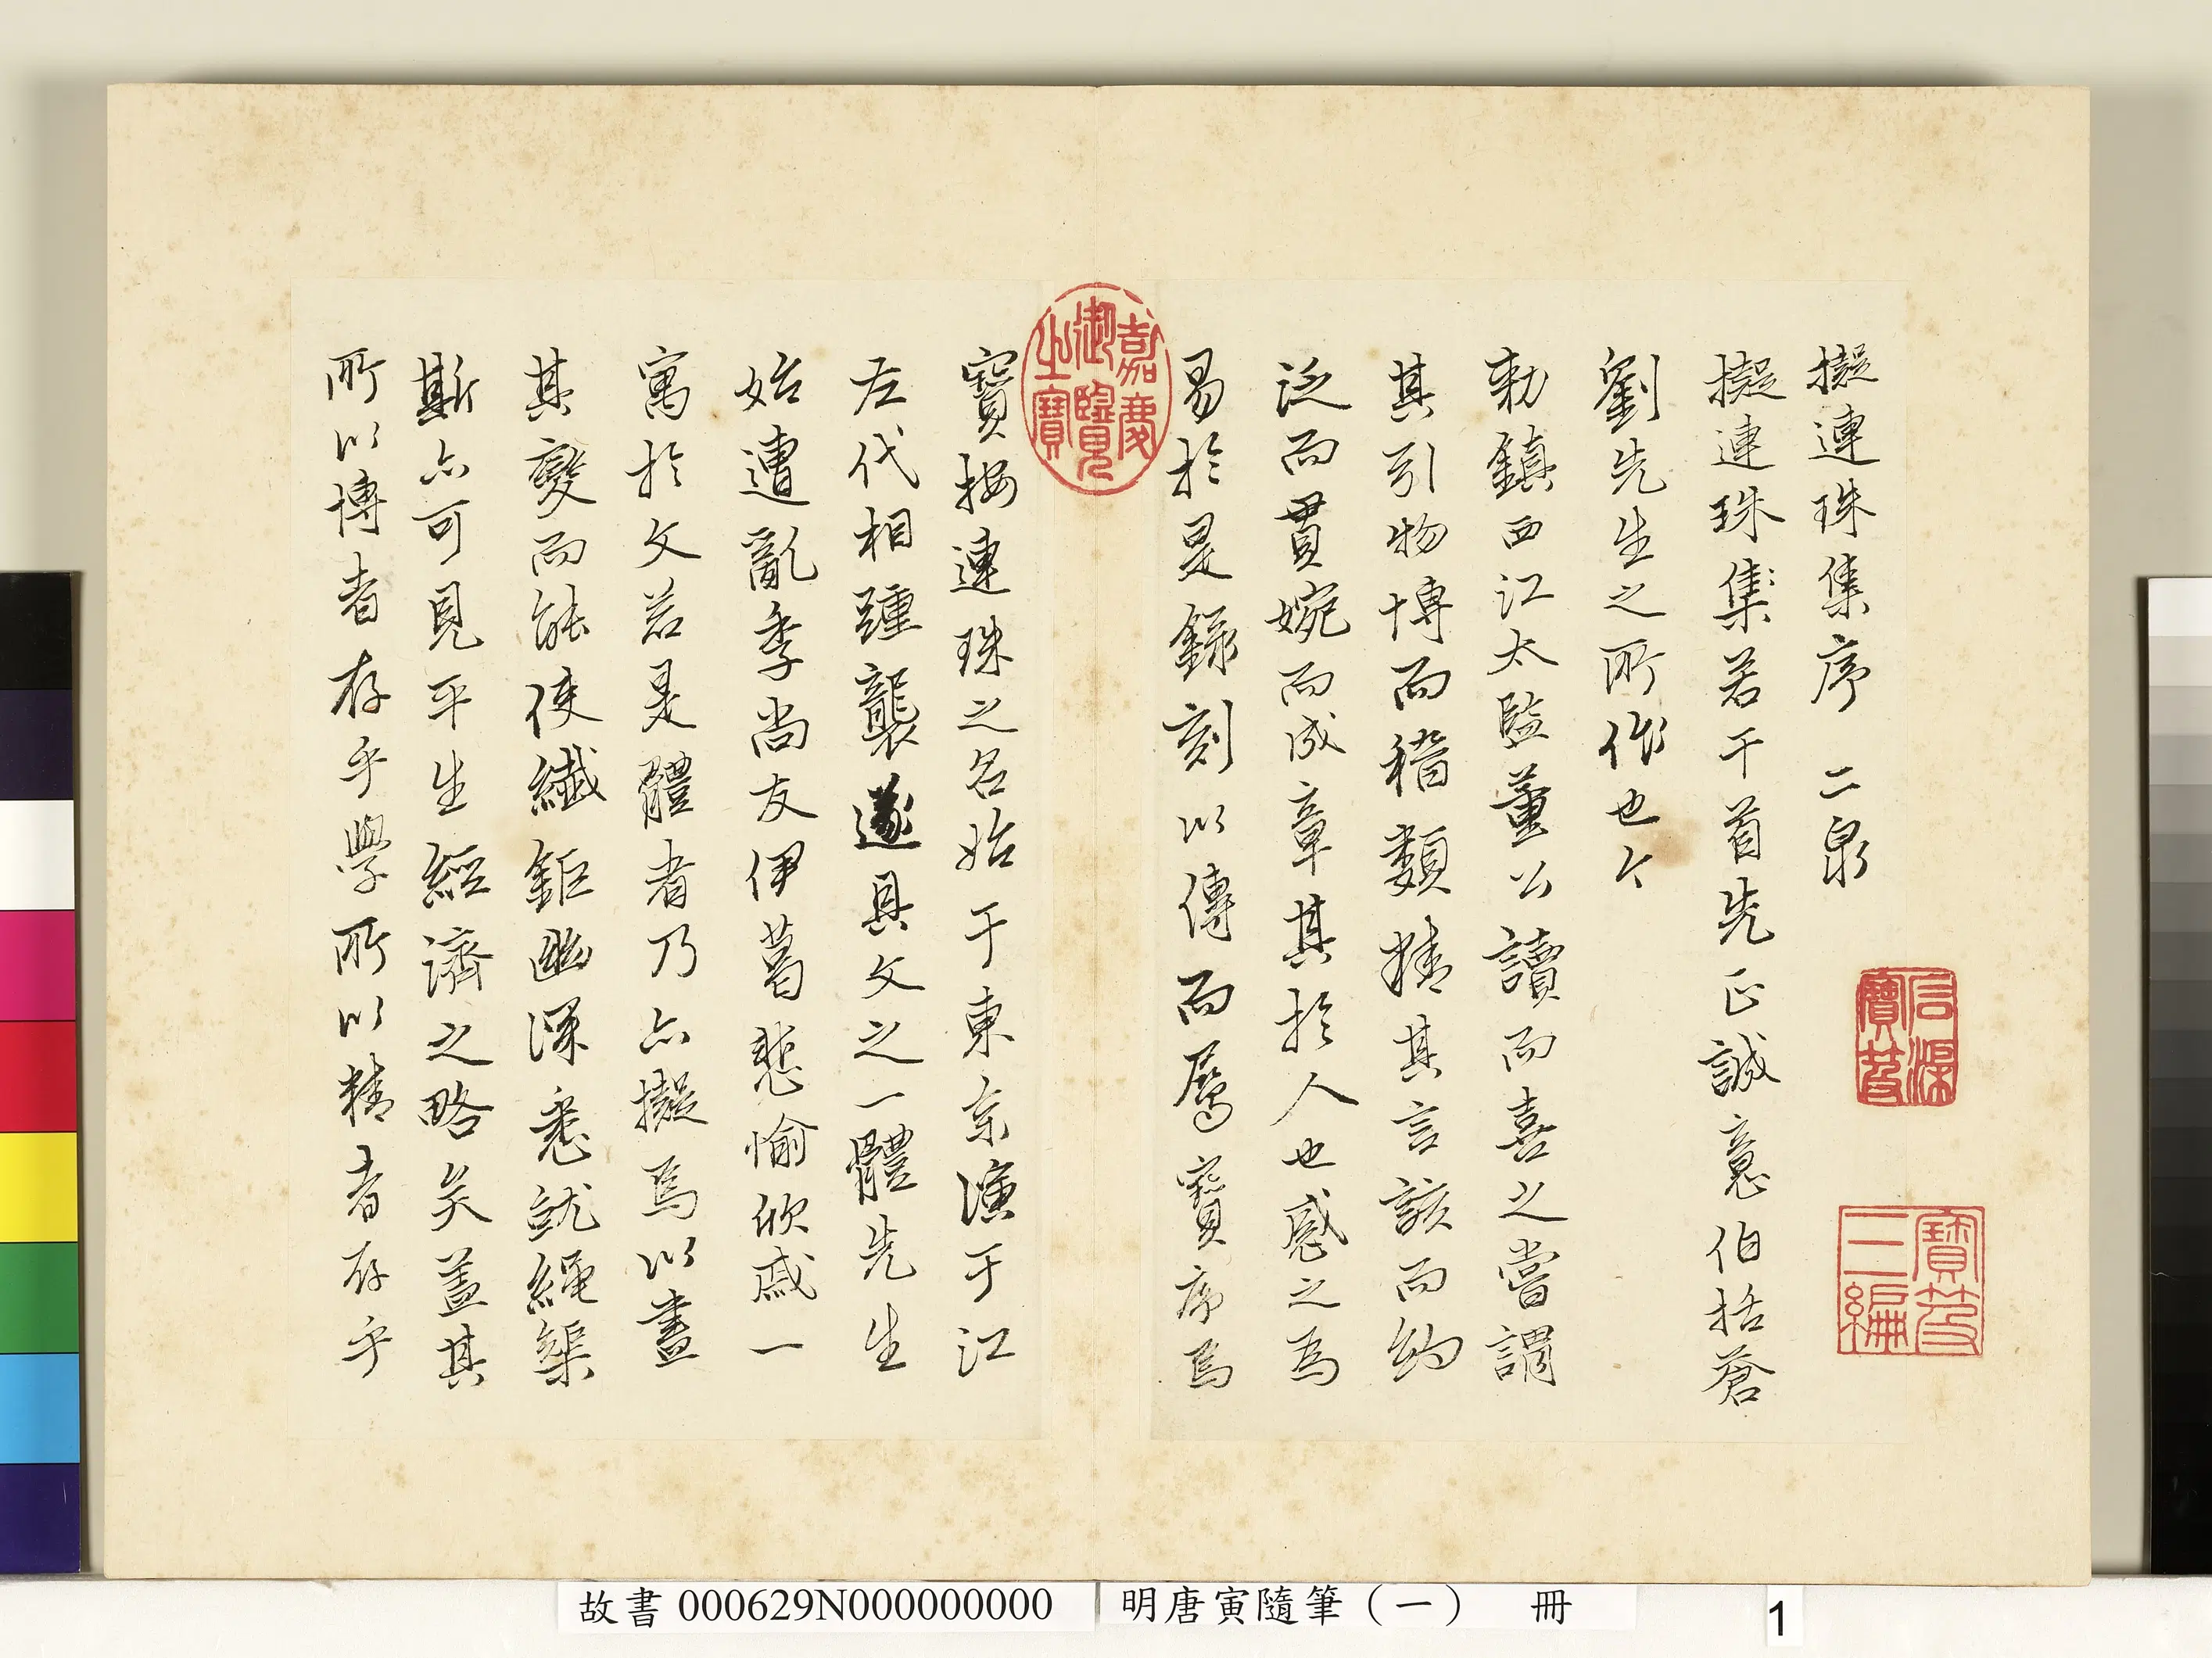 擬連珠集序　二泉
擬連珠集若干首先正誠意伯括蒼
劉先生之所作也今
勅鎮西江太監董公讀而喜之嘗謂
其引物博而稽類精其言該而約
泛而貫婉而成章其於人也感之為
易於是錄刻以傳而屬寶序焉
寶按連珠之名始于東京演于江
左代相踵襲遂具文之一體先生
始遭亂季尚友伊葛悲愉欣戚一
寓於文若是體者乃亦擬焉以盡
其變而能使纖鉅幽深悉就繩榘
斯亦可見平生經濟之略矣蓋其
所以博者存乎學所以精者存乎
嘉慶御覽之寶
石渠寶笈
寶笈三編
故書 000629N000000000
明唐寅隨筆（一）　冊
1